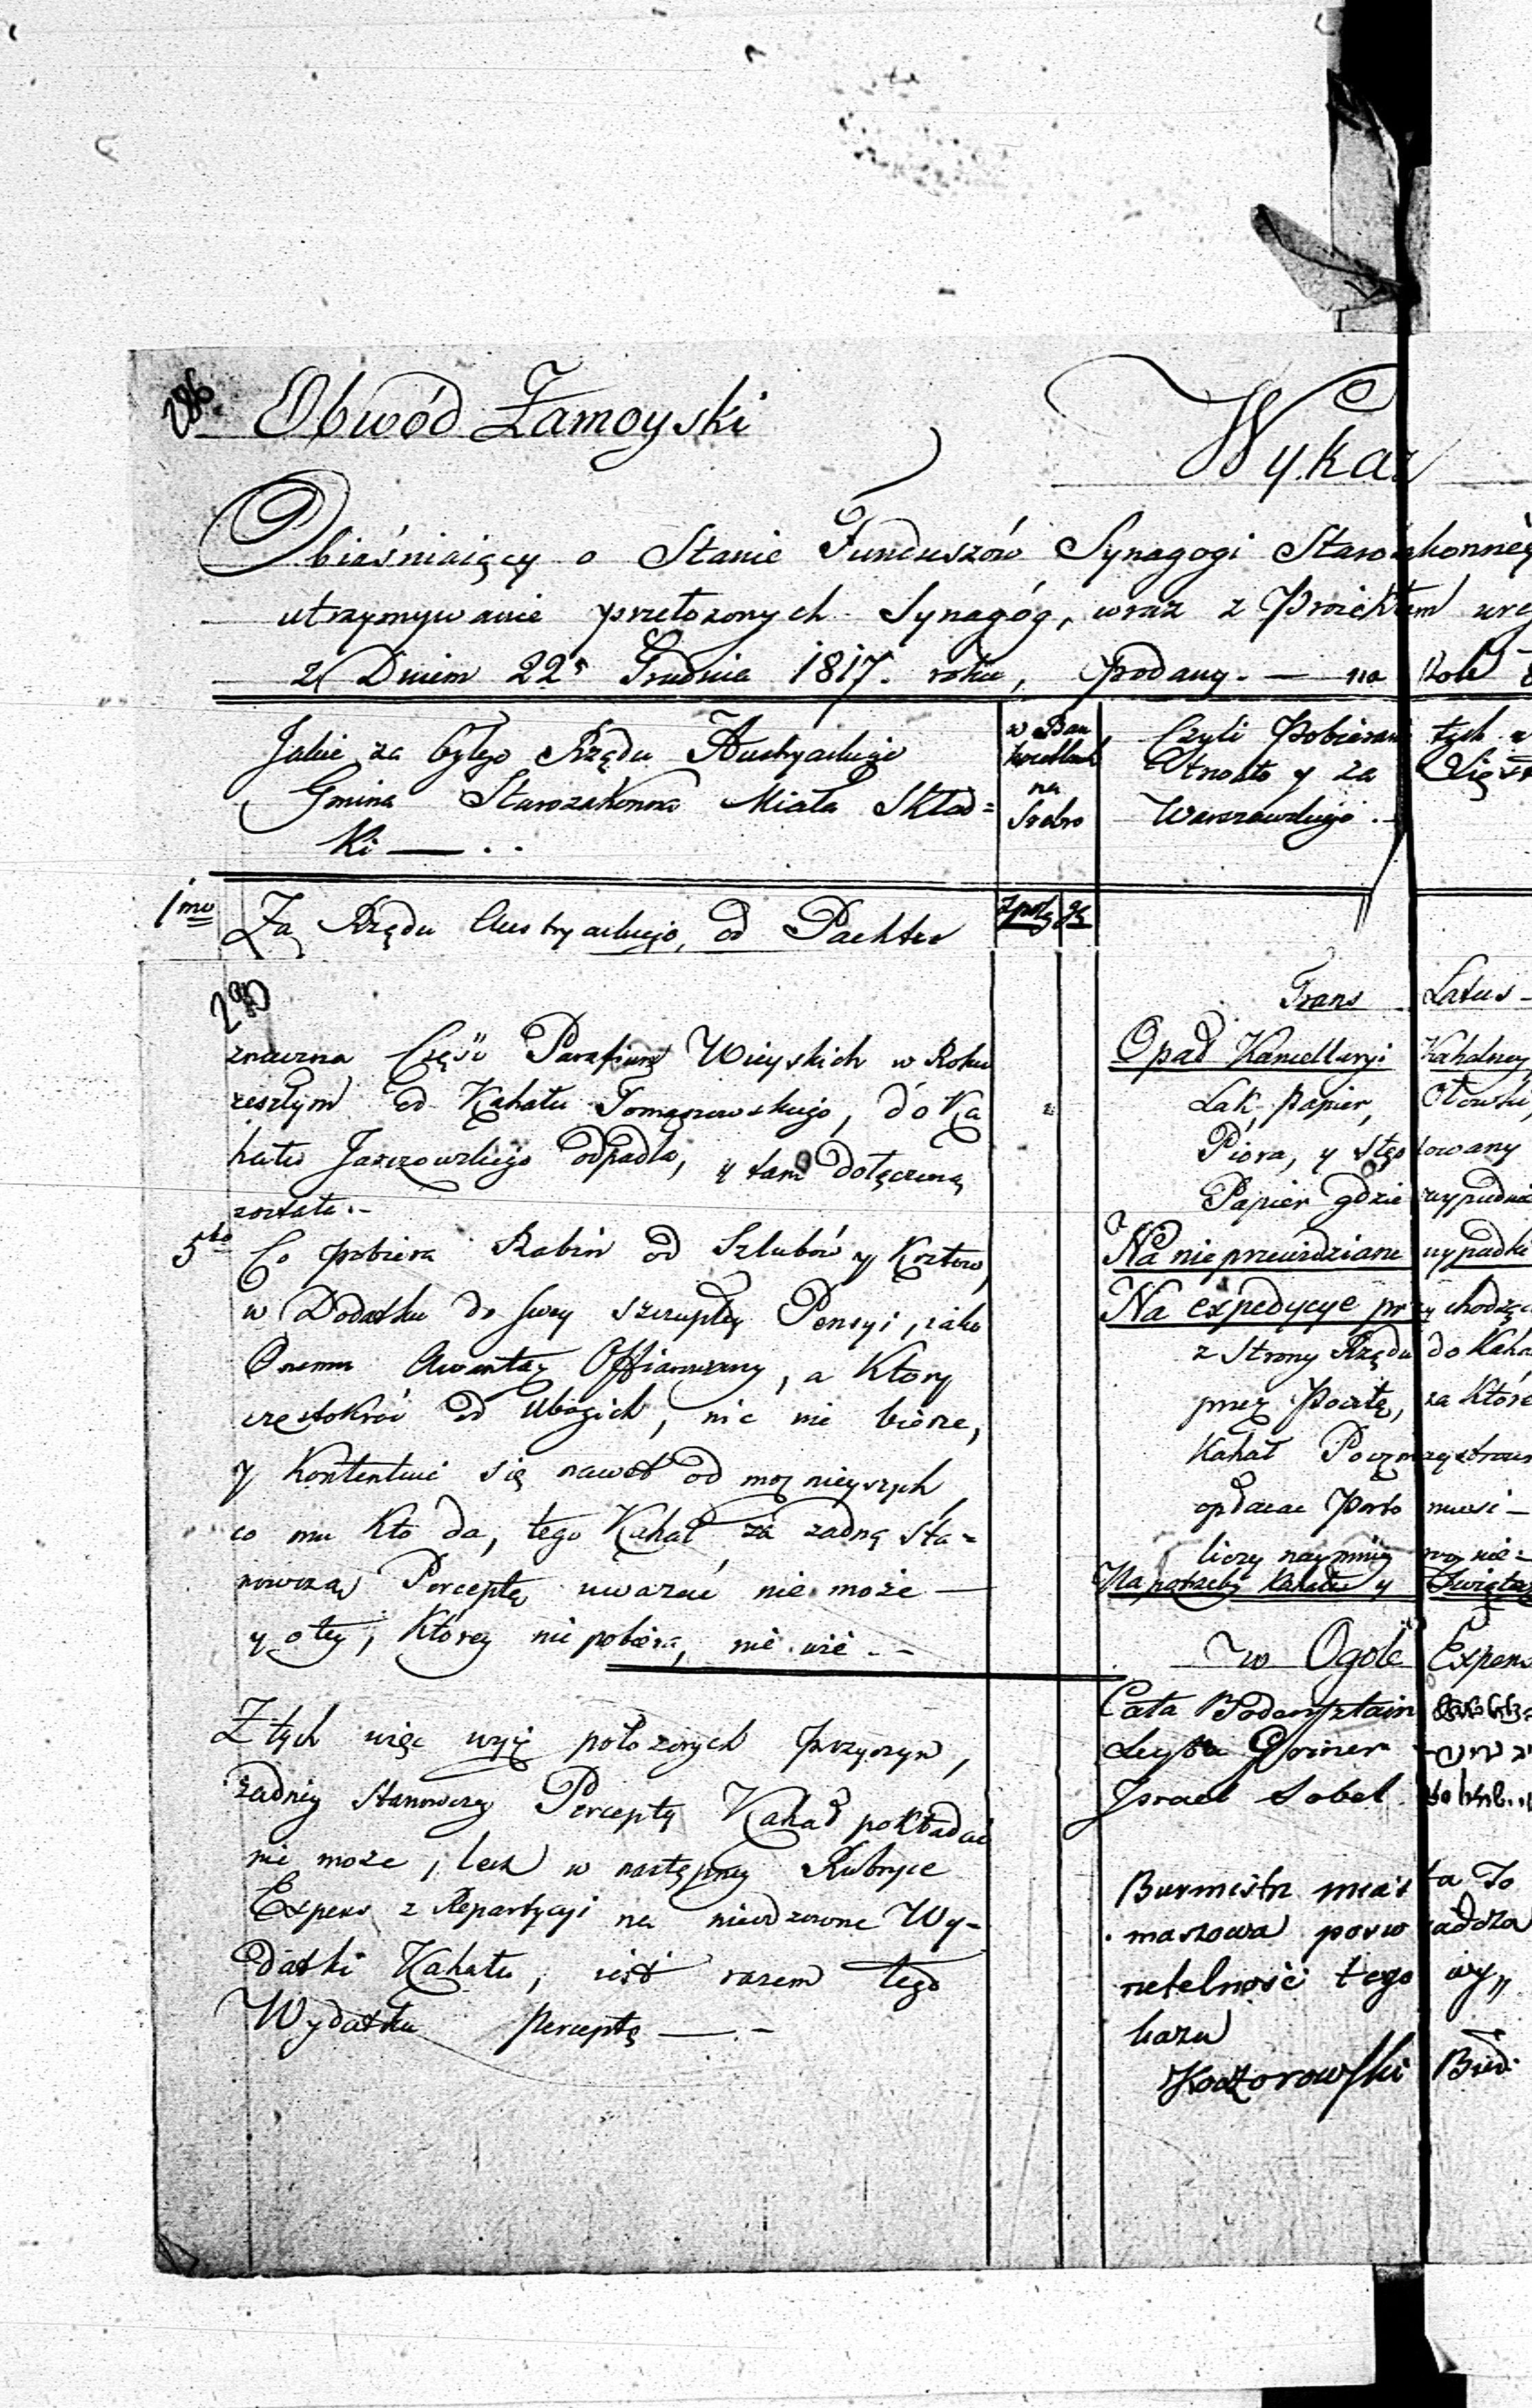 286.
Obwód Zamoyski
Wykaz
Obiaśniaiący o Stanie Funduszów Synagogi Starozakonnéy
utrzymywanie przełożonych Synagóg, wraz z Proiektem
z Dniem 22º Grudnia 1817. roku, podany. — na
Jakie za byłego Rządu Austryackiego
Gmina Starozakonna Miała Skład=
ki — . .
w Ban
kocetlach
na
Srebro
Czyli Pobieranie tych
y za Xięstwa
Warszawskiego. —
1mo Za Rządu Austryackiego, od Pachtu
Złpol. gr
290
znaczna Część Parafian Wieyskich w Roku
zeszłym od Kahału Tomaszowskiego, do Ka
hału Jarczowskiego odpadła, y tam dołączoną
została. —
5to Co pobiera Rabin od Szlubów y Koztow,
w Dodatku do swey szczupłey Pensyi, iako
Onemu Awantaz Offiarowany, a Ktory
częstokroć od Ubogich, nic nie bierze,
y Kontentuie się nawet od moznieyszych
co mu kto da, tego Kahał za zadną sta=
nowczą Perceptę uwazać nie może —
y o tey, Którey nie pobiera, nie wie. —
Z tych więc wyż położonych przyczyn,
żadney stanowczey Percepty Kahał pokładać
nie może, lecz w następney Rubryce
Expens z Repartycyi na nieodzowne Wy=
datki Kahału, iest razem tego
Wydatku perceptą —. —
Trans Latus —
Opał Kancellaryi Kahalney
Lak, papier, Ołowki,
Pióra, y stęplowany
Papier gdzie wypadnie
Na nie przewidziane wypadki
Na expedycye przychodzące
z Strony Rządu do Kaha
przez Pocztę, za Które
Kahał
opłacac Porto musi —
liczy naymniey
Na potrzeby Kahału y
w Ogóle Expens
Cała
Leyba Gorner
Israel Sobel
Burmistrz miasta To
maszowa poswiadcza
rzetelność tego wy„
kazu
Koczorowski Bur.